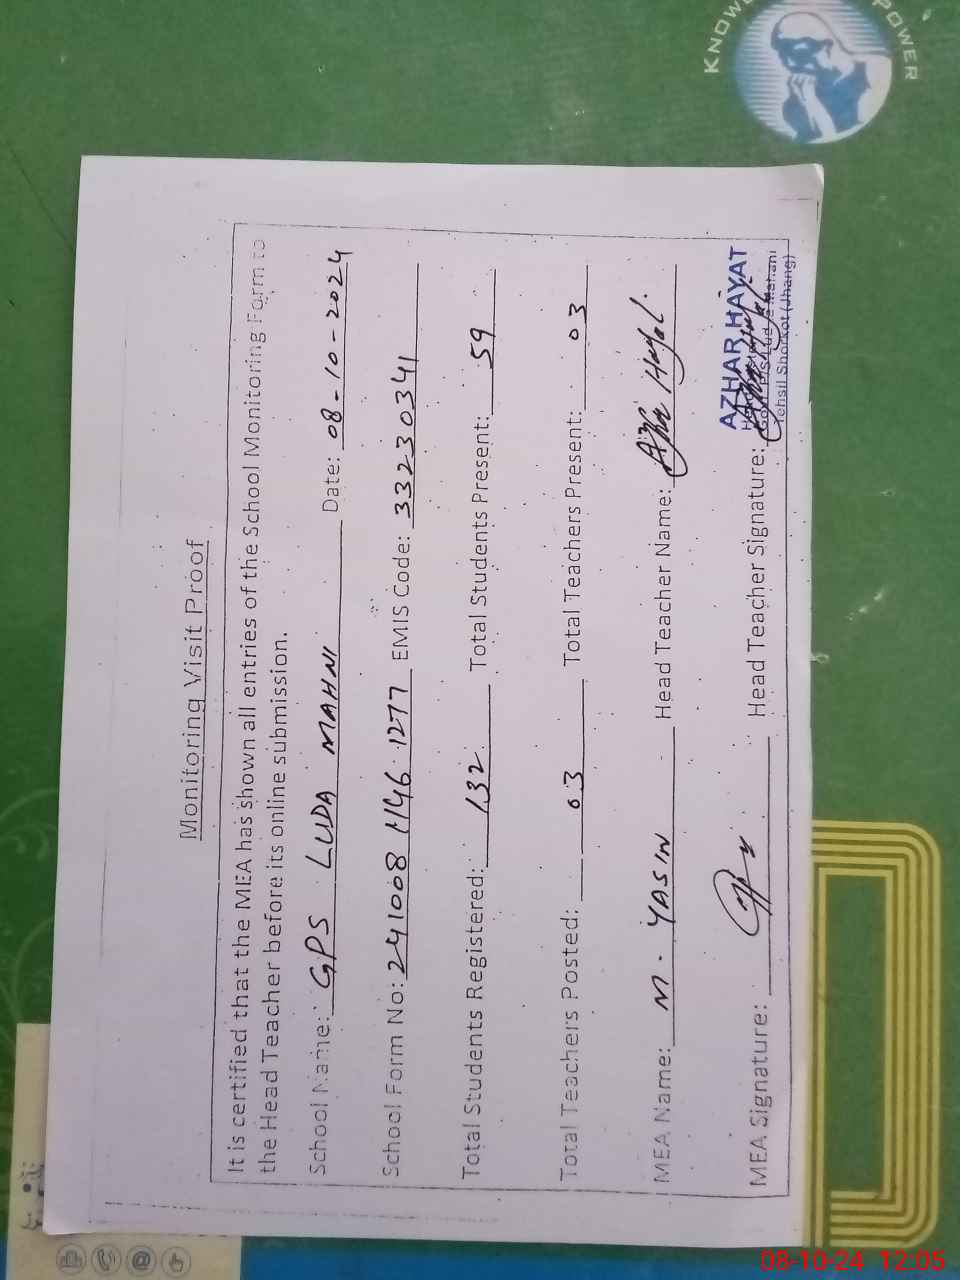 KNOW
POWER
Monitoring Visit Proof
It is certified that the MEA has shown all entries of the School Monitoring Form to
the Head Teacher before its online submission.
School Name: GPS LUDA MAHNI Date: 08-10-2024
School Form No: 241008 1146 1277 EMIS Code: 33230341
Total Students Registered: 132 Total Students Present: 59
Total Teachers Posted: 03 Total Teachers Present: 03
MEA Name: M. YASIN Head Teacher Name: Azhar Hayat.
MEA Signature: Head Teacher Signature:
AZHAR HAYAT
Tehsil Shorkot (Jhang)
08-10-24 12:05